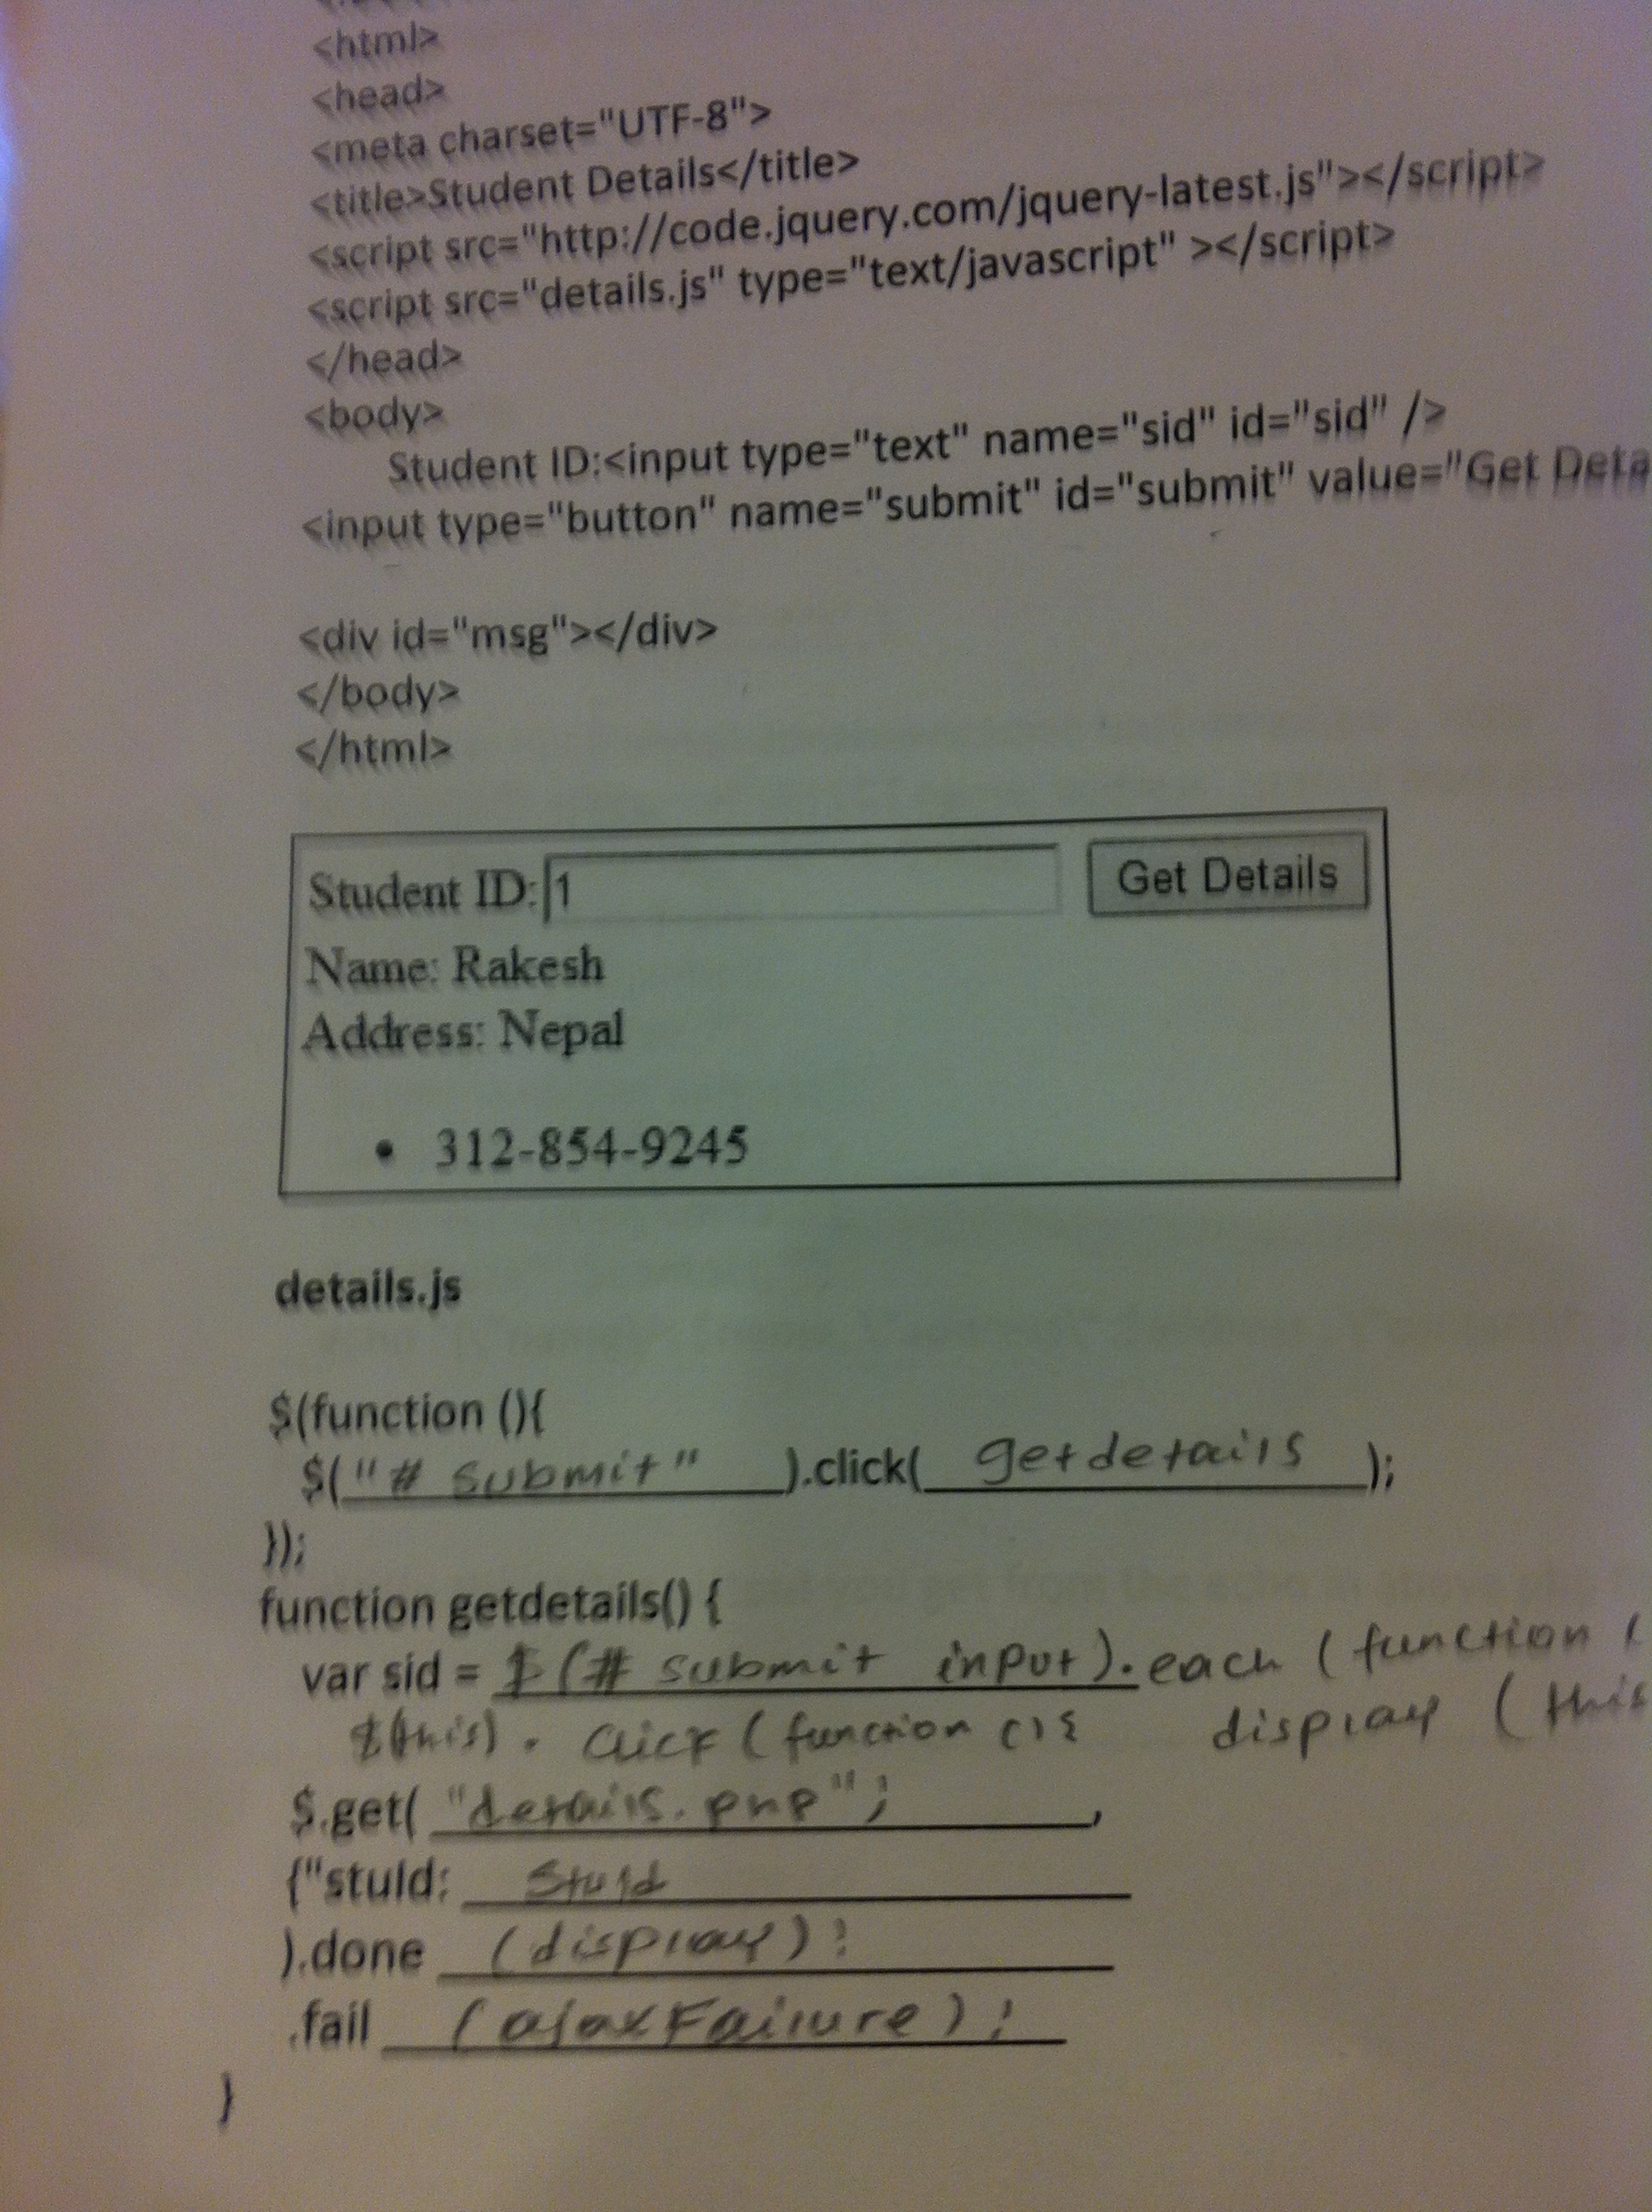 <html>
<head>
<meta charset="UTF-8">
<title>Student Details</title>
<script src="http://code.jquery.com/jquery-latest.js"></script>
<script src="details.js" type="text/javascript" ></script>
</head>
<body>
Student ID:<input type="text" name="sid" id="sid" />
<input type="button" name="submit" id="submit" value="Get Deta
<div id="msg"></div>
</body>
</html>
Student ID: 1 Get Details
Name: Rakesh
Address: Nepal
• 312-854-9245
details.js
$(function (){
$("# submit" ).click( getdetails );
});
function getdetails() {
var sid = $(# submit input).each (function (
$(this). click (function () { display (this
$.get( "details.php"; ,
{"stuId: StuId
).done (display);
.fail (ajaxFailure);
}